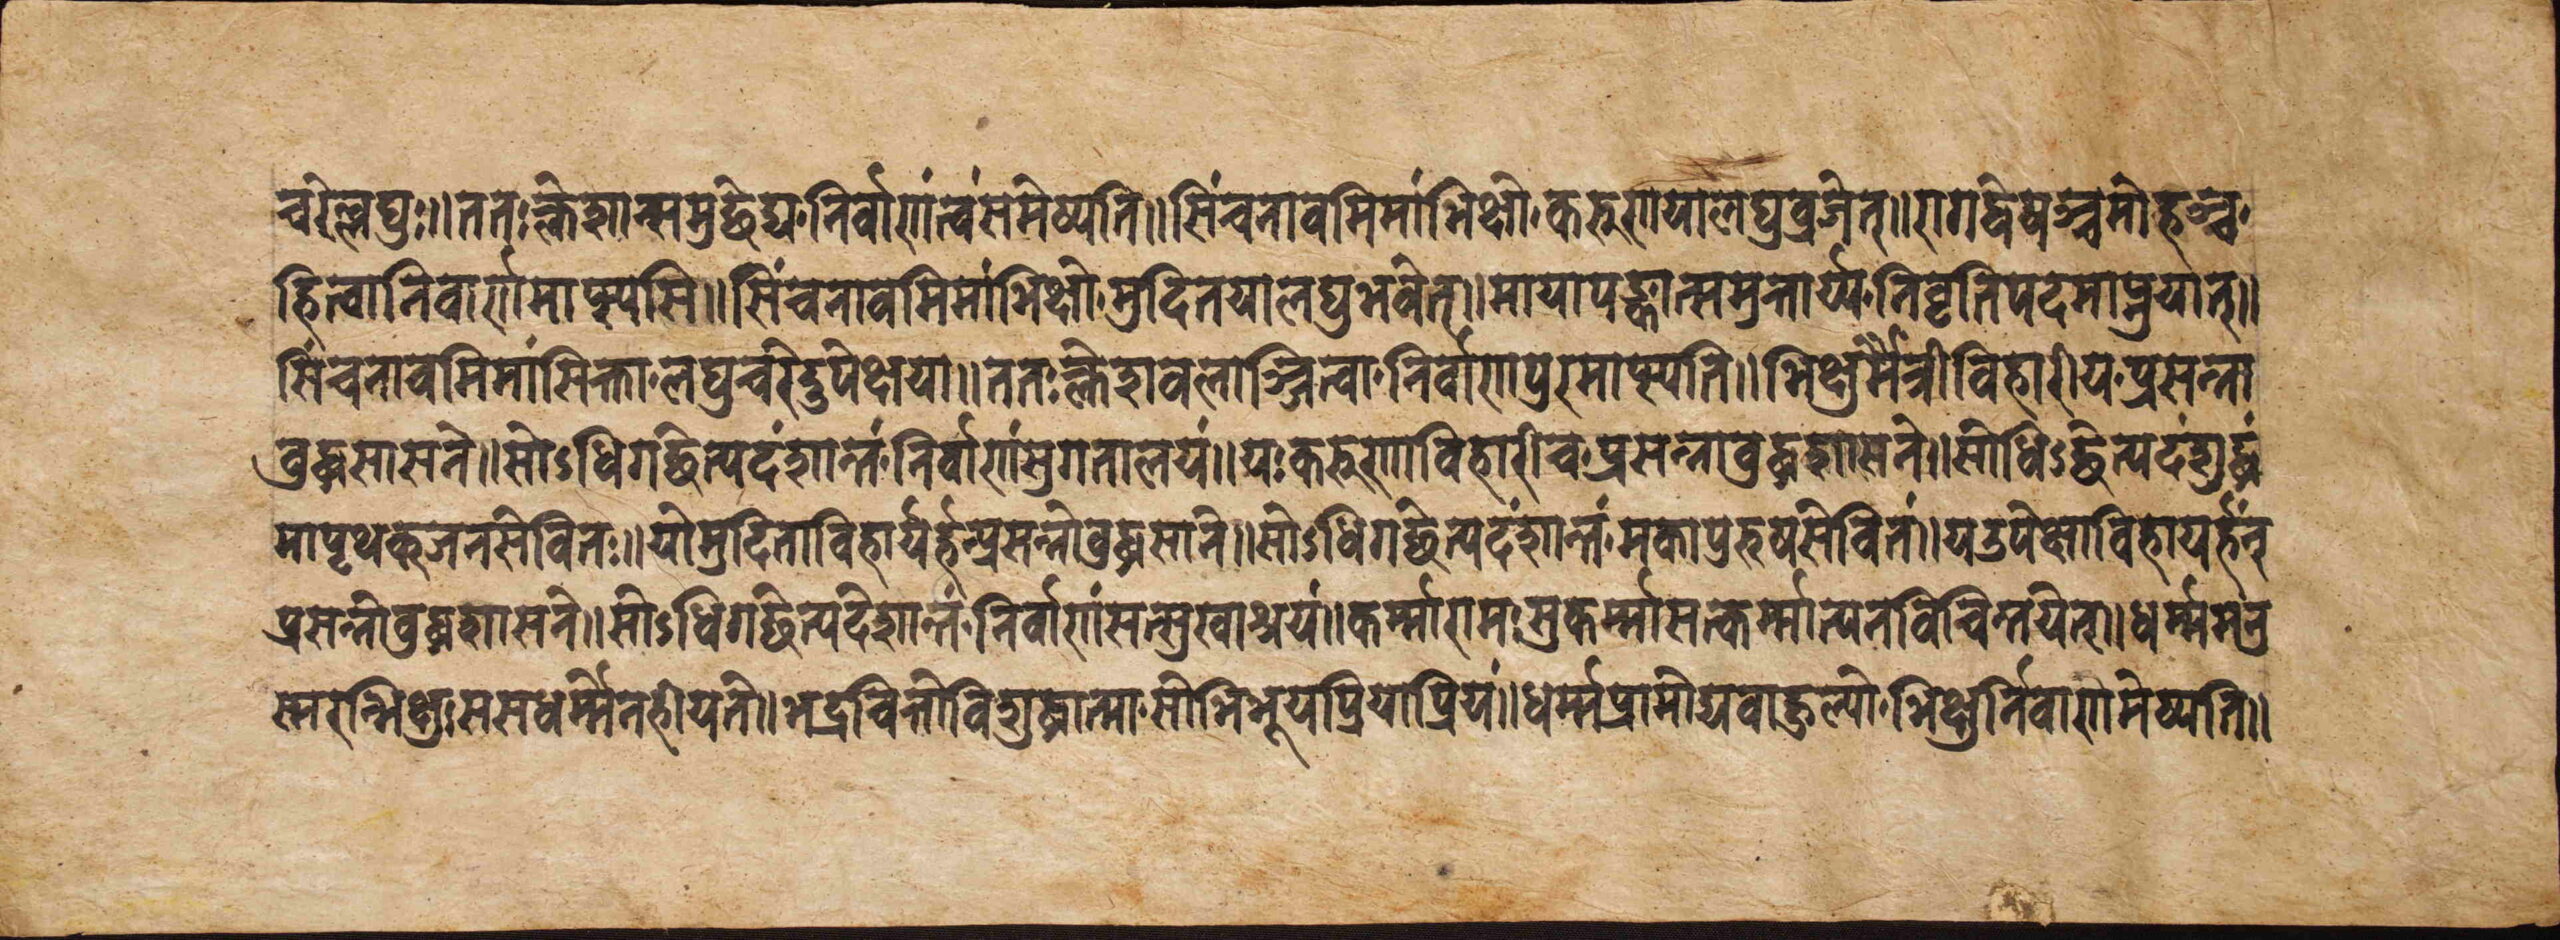 चरेल्लघुः॥ततःक्लेशान्समुच्छेद्य॰निर्वाणंत्वंसमेष्यति॥सिंचनावमिमांभिक्षो॰करुणयालघुव्रजेत्॥रागद्वेषञ्चमोहञ्च॰
हित्वानिवार्णमाप्स्यसि॥सिंचनावमिमांभिक्षो॰मुदितयालघुभवेत्॥मायापङ्कात्समुत्तार्य्य॰निवृतिपदमाप्नुयात्॥
सिंचनावमिमांसिक्ता॰लघुचरेदुपेक्षया॥ततःक्लेशवलाञ्जित्वा॰निर्वाणपुरमाप्स्यति॥भिक्षुर्मैत्रीविहारीय॰प्रसन्ना
बुद्धसासने॥सोऽधिगच्छेत्पदंशान्तं॰निर्वाणंसुगतालयं॥यःकरुणाविहारीच॰प्रसन्नाबुद्धशासने॥सोधिऽच्छेत्पदंशुद्धं
मापृथक्जनसेवितः॥योमुदिताविहार्यर्हन्प्रसन्नोबुद्धसाने॥सोऽधिगच्छेत्पदंशान्तं॰मकापुरुषसेवितं॥यउपेक्षाविहायर्हंन्
प्रसन्नोबुद्धशासने॥सोऽधिगच्छेत्पदेशान्तं॰निर्वाणंसत्सुखाश्रयं॥कर्म्मारामःसुकर्म्मासत्कर्म्मान्यनविचिन्तयेत्॥धर्म्ममनु
स्मरन्भिक्षु॰ससधर्म्मेनहीयते॥भद्रचित्तोविशुद्धात्मा॰सोभिभूयप्रियाप्रियं॥धर्म्मप्रामोद्यवाहुल्यो॰भिक्षुर्निवाणमेष्यति॥